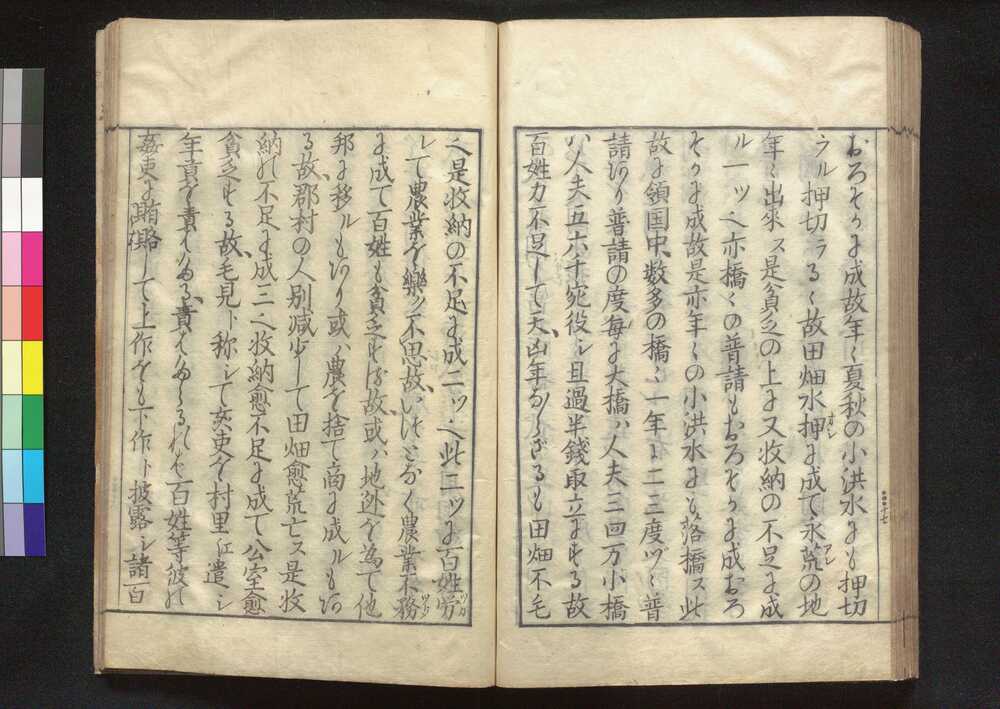 おろそかに成故年〱夏秋の小洪水にも押切
ラル押切ラるゝ故田畑水押に成て永荒の地
年〻出來ス是貧乏の上に又收納の不足に成
ル一ッ〈亦橋〱の普請もおろそかに成おろ
そかに成故是亦年〱の小洪水にも落橋ス此
故に領国中数多の橋〻一年に二三度ヅヽ普
請あり普請の度毎に大橋ハ人夫三四万小橋
ハ人夫五六千宛役シ且過半錢取立にする故
百姓力不足して天凶年ならざるも田畑不毛
〈是收納の不足に成二ッ〈此二ッに百姓労
レて農業を樂ッ不思故いつとなく農業不務
に成て百姓も貧乏する故或ハ地迯を為て他
邦に移ルもあり或ハ農を捨て商に成ルもあ
る故郡村の人別減少して田畑愈荒亡ス是收
納の不足に成三〈收納愈不足に成て公室愈
貧乏する故毛見ト称して奸吏を村里江遣シ
年貢を責はたる責はたらるれは百姓等彼の
姦吏に賄賂して上作をも下作ト披露シ諸百